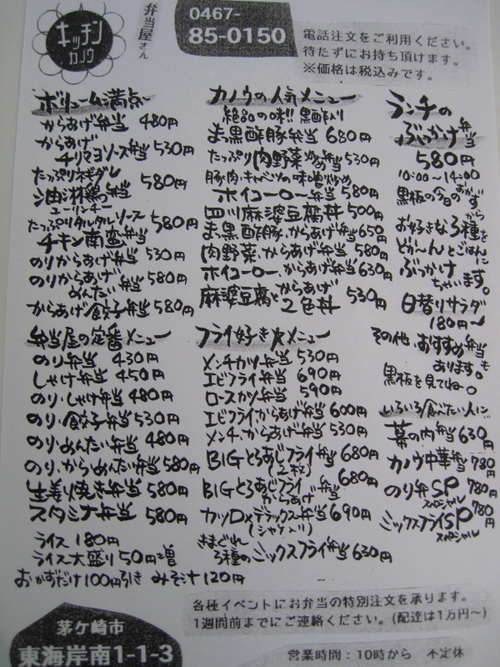 キッチン
カノウ
弁当屋さん
0467-
85-0150
電話注文をご利用ください。
待たずにお持ち頂けます。
※価格は税込みです。
ボリューム満点
からあげ弁当 480円
からあげ
チリマヨソース弁当 530円
たっぷりネギダレ
油淋鶏弁当 580円
ユーリンチー
たっぷりタルタルソース
チキン南蛮弁当 580円
のりからあげ弁当 530円
のりからあげ
めんたい弁当 580円
からあげ餃子弁当 580円
弁当屋の定番メニュー
のり弁当 430円
しゃけ弁当 450円
のり・しゃけ弁当 480円
のり・餃子弁当 530円
のり・めんたい弁当 480円
のり・からめんたい弁当 580円
生姜焼き弁当 580円
スタミナ弁当 580円
ライス 180円
ライス大盛り 50円増
おかずだけ100円引き みそ汁120円
カノウの人気メニュー
絶品の味!! 黒酢入り
ま黒酢豚弁当 680円
たっぷり肉野菜炒め弁当 530円
豚肉・キャベツの味噌炒め
ホイコーロー弁当 580円
四川麻婆豆腐丼 500円
ま黒酢豚・からあげ弁当 650円
肉野菜・からあげ弁当 580円
ホイコーロー・からあげ弁当 630円
麻婆豆腐とからあげ
2色丼 530円
フライ好き メニュー
メンチカツ弁当 530円
エビフライ弁当 690円
ロースカツ弁当 590円
エビフライからあげ弁当 600円
メンチ・からあげ弁当 530円
BIGとろあじフライ弁当 680円
(2枚)
BIGとろあじフライ
からあげ 680円
カツDXデラックス弁当 690円
(シャケ入り)
きまぐれ
3種のミックスフライ弁当 630円
ランチの
ぶっかけ弁当
580円
10:00~14:00
黒板の今日のおかずから
お好きな3種を
どか~んとごはんに
ぶっかけ
ちゃいます。
日替りサラダ
180円~
その他、おすすめ弁当も
あります。
黒板を見てね。
いろいろ食べたい人に
幕の内弁当 630円
カノウ中華弁当 780円
のり弁SP 780円
スペシャル
ミックスフライSP 780円
スペシャル
各種イベントにお弁当の特別注文を承ります。
1週間前までにご連絡ください。(配達は1万円~)
茅ケ崎市
東海岸南1-1-3
営業時間:10時から 不定休